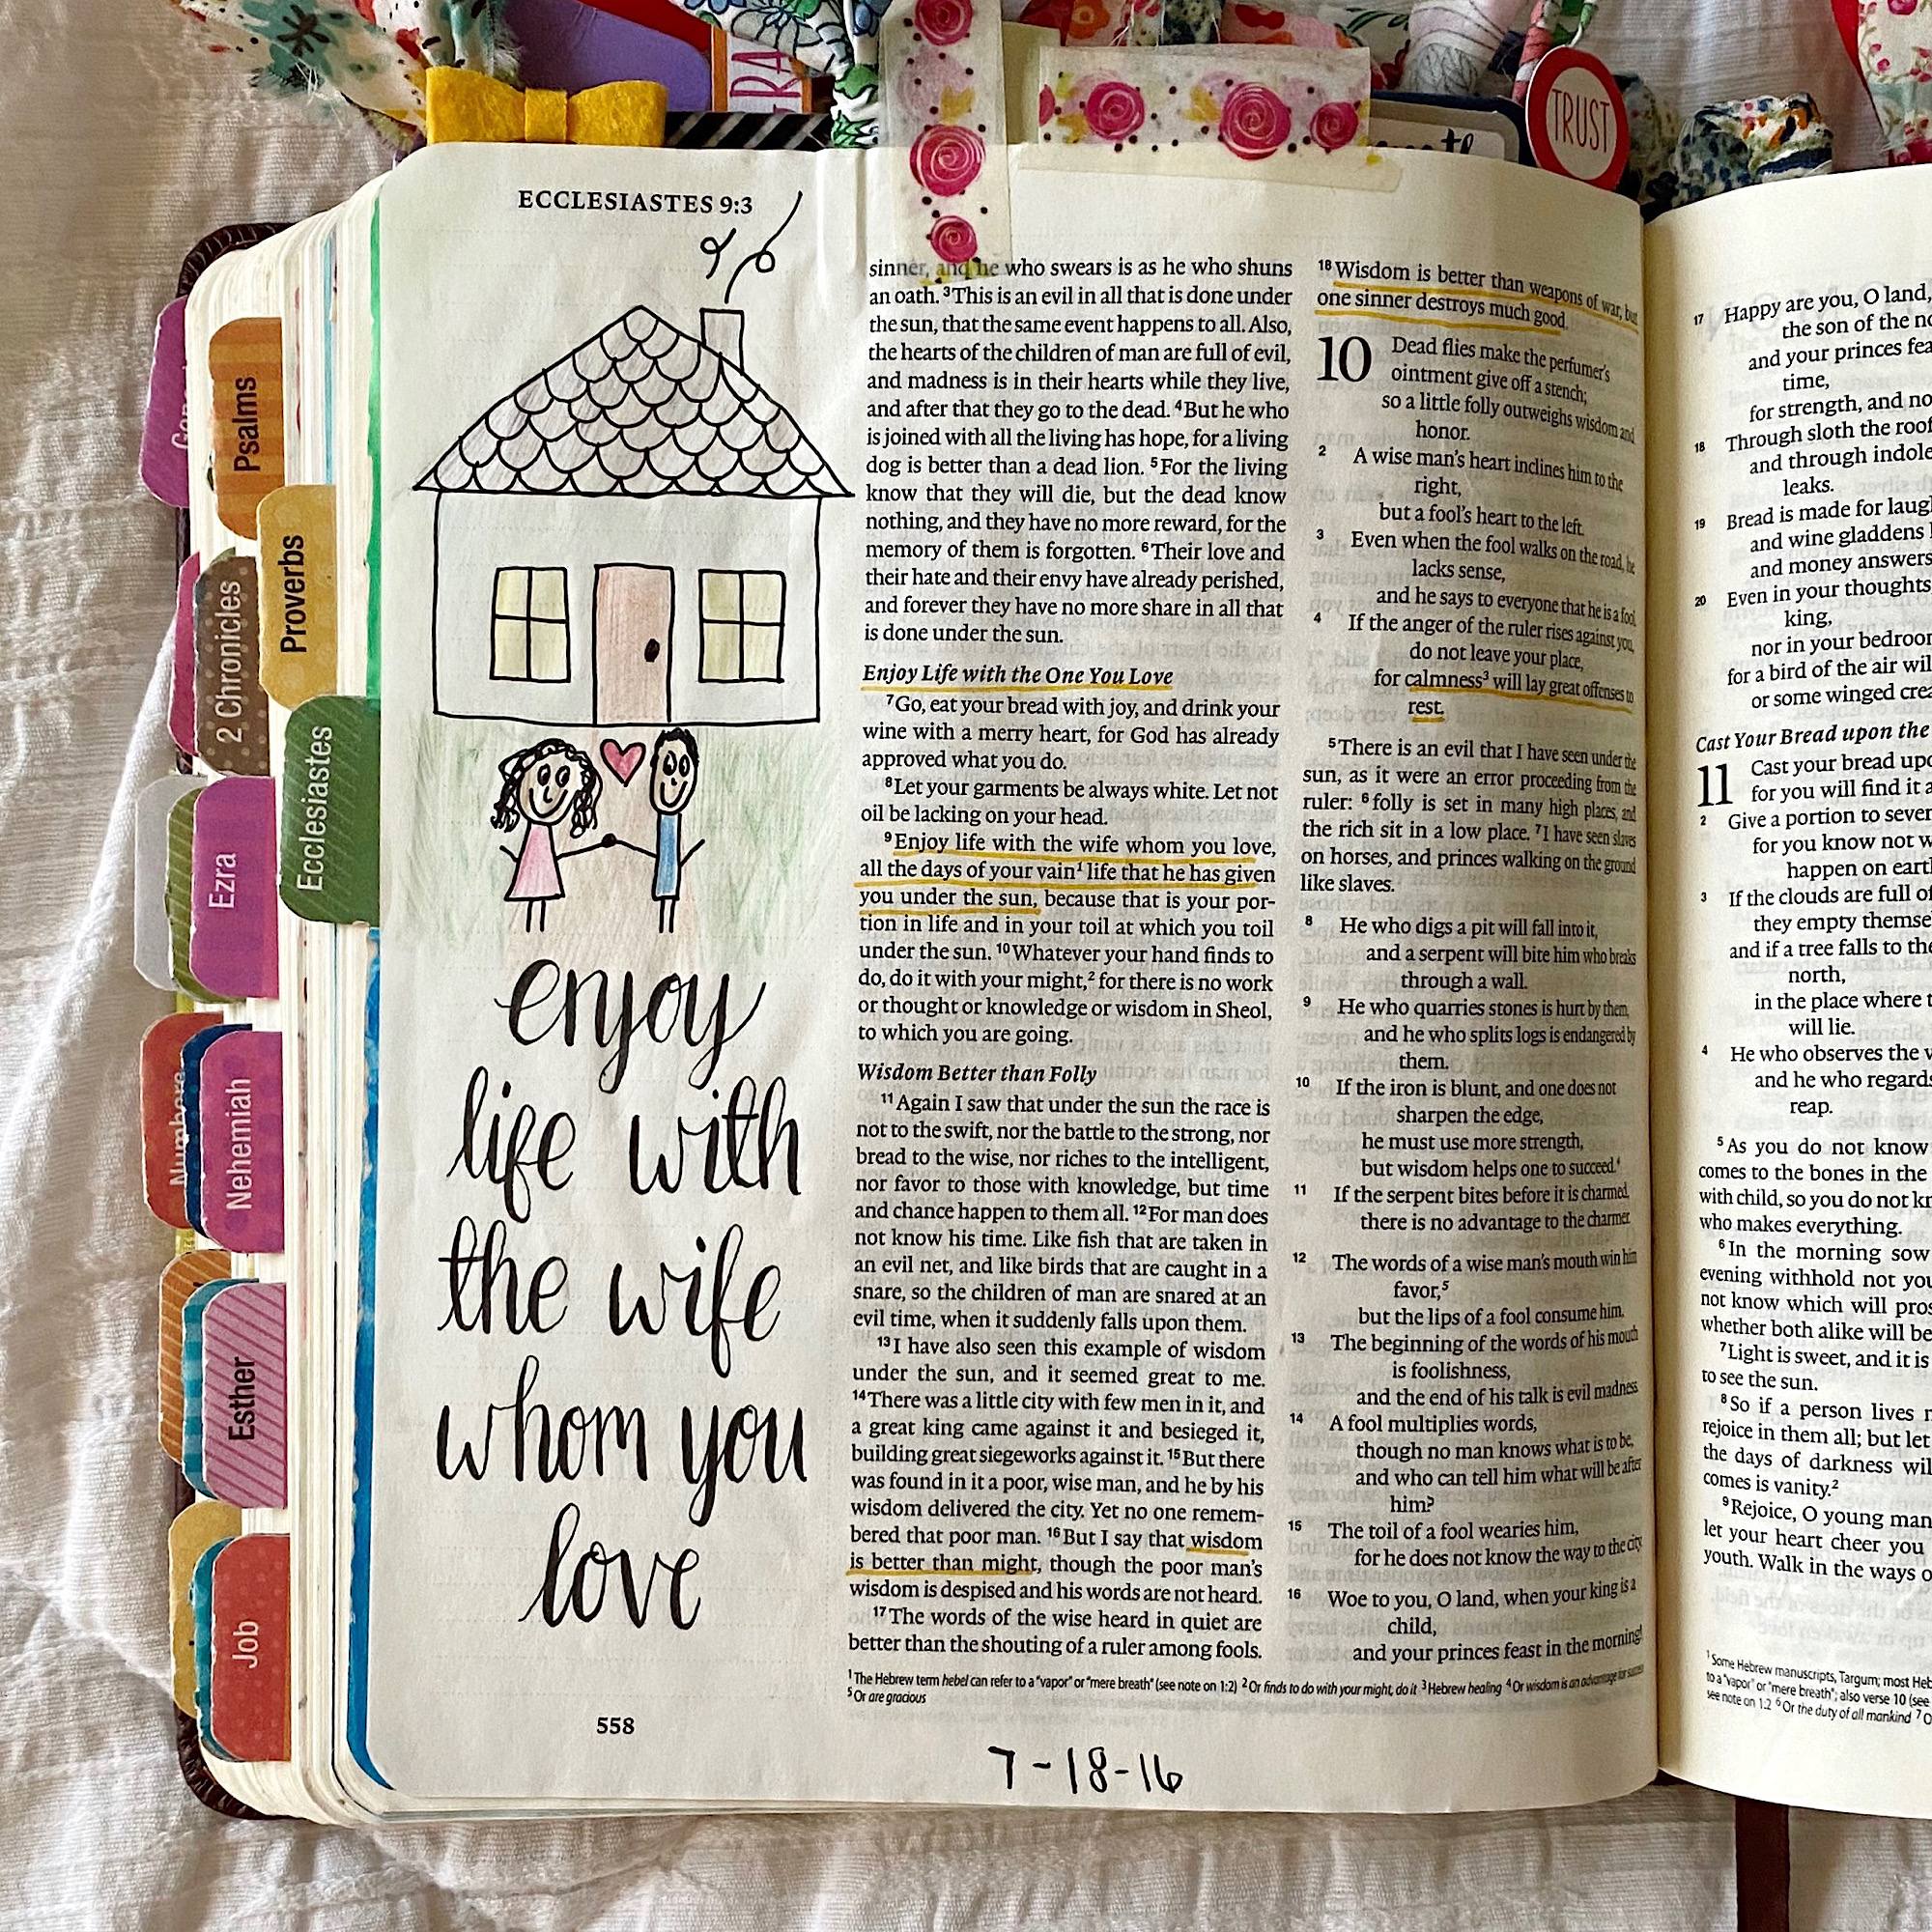 GRA
TRUST
Psalms
Proverbs
2 Chronicles
Ecclesiastes
Ezra
Numbers
Nehemiah
Esther
Job
ECCLESIASTES 9:3
enjoy
life with
the wife
whom you
love
558
sinner, and he who swears is as he who shuns
an oath. 3This is an evil in all that is done under
the sun, that the same event happens to all. Also,
the hearts of the children of man are full of evil,
and madness is in their hearts while they live,
and after that they go to the dead. 4But he who
is joined with all the living has hope, for a living
dog is better than a dead lion. 5For the living
know that they will die, but the dead know
nothing, and they have no more reward, for the
memory of them is forgotten. 6Their love and
their hate and their envy have already perished,
and forever they have no more share in all that
is done under the sun.
Enjoy Life with the One You Love
7Go, eat your bread with joy, and drink your
wine with a merry heart, for God has already
approved what you do.
8Let your garments be always white. Let not
oil be lacking on your head.
9Enjoy life with the wife whom you love,
all the days of your vain1 life that he has given
you under the sun, because that is your por-
tion in life and in your toil at which you toil
under the sun. 10Whatever your hand finds to
do, do it with your might,2 for there is no work
or thought or knowledge or wisdom in Sheol,
to which you are going.
Wisdom Better than Folly
11Again I saw that under the sun the race is
not to the swift, nor the battle to the strong, nor
bread to the wise, nor riches to the intelligent,
nor favor to those with knowledge, but time
and chance happen to them all. 12For man does
not know his time. Like fish that are taken in
an evil net, and like birds that are caught in a
snare, so the children of man are snared at an
evil time, when it suddenly falls upon them.
13I have also seen this example of wisdom
under the sun, and it seemed great to me.
14There was a little city with few men in it, and
a great king came against it and besieged it,
building great siegeworks against it. 15But there
was found in it a poor, wise man, and he by his
wisdom delivered the city. Yet no one remem-
bered that poor man. 16But I say that wisdom
is better than might, though the poor man's
wisdom is despised and his words are not heard.
17The words of the wise heard in quiet are
better than the shouting of a ruler among fools.
18Wisdom is better than weapons of war, but
one sinner destroys much good.
10 Dead flies make the perfumer's
ointment give off a stench;
so a little folly outweighs wisdom and
honor.
2 A wise man's heart inclines him to the
right,
but a fool's heart to the left.
3 Even when the fool walks on the road, he
lacks sense,
and he says to everyone that he is a fool.
4 If the anger of the ruler rises against you,
do not leave your place,
for calmness3 will lay great offenses to
rest.
5There is an evil that I have seen under the
sun, as it were an error proceeding from the
ruler: 6folly is set in many high places, and
the rich sit in a low place. 7I have seen slaves
on horses, and princes walking on the ground
like slaves.
8 He who digs a pit will fall into it,
and a serpent will bite him who breaks
through a wall.
9 He who quarries stones is hurt by them,
and he who splits logs is endangered by
them.
10 If the iron is blunt, and one does not
sharpen the edge,
he must use more strength,
but wisdom helps one to succeed.4
11 If the serpent bites before it is charmed,
there is no advantage to the charmer.
12 The words of a wise man's mouth win him
favor,5
but the lips of a fool consume him.
13 The beginning of the words of his mouth
is foolishness,
and the end of his talk is evil madness.
14 A fool multiplies words,
though no man knows what is to be,
and who can tell him what will be after
him?
15 The toil of a fool wearies him,
for he does not know the way to the city.
16 Woe to you, O land, when your king is a
child,
and your princes feast in the morning!
1The Hebrew term hebel can refer to a "vapor" or "mere breath" (see note on 1:2) 2Or finds to do with your might, do it 3Hebrew healing 4Or wisdom is an advantage for success
5Or are gracious
7-18-16
17 Happy are you, O land,
the son of the
and your princes
time,
for strength, and
18 Through sloth the
and through
leaks.
19 Bread is made for
and wine gladdens
and money answers
20 Even in your thoughts,
king,
nor in your
for a bird of the air
or some winged
Cast Your Bread upon the
11 Cast your bread
for you will find it
2 Give a portion to
for you know not
happen on
3 If the clouds are full
they empty
and if a tree falls to the
north,
in the place where
will lie.
4 He who observes the
and he who
reap.
5As you do not know
comes to the bones in the
with child, so you do not
who makes everything.
6In the morning sow
evening withhold not
not know which will
whether both alike will be
7Light is sweet, and it is
to see the sun.
8So if a person lives
rejoice in them all; but let
the days of darkness
comes is vanity.2
9Rejoice, O young man,
let your heart cheer you
youth. Walk in the ways
1Some Hebrew manuscripts, Targum; most
to a "vapor" or "mere breath"; also verse 10 (see
see note on 1:2 6Or the duty of all mankind